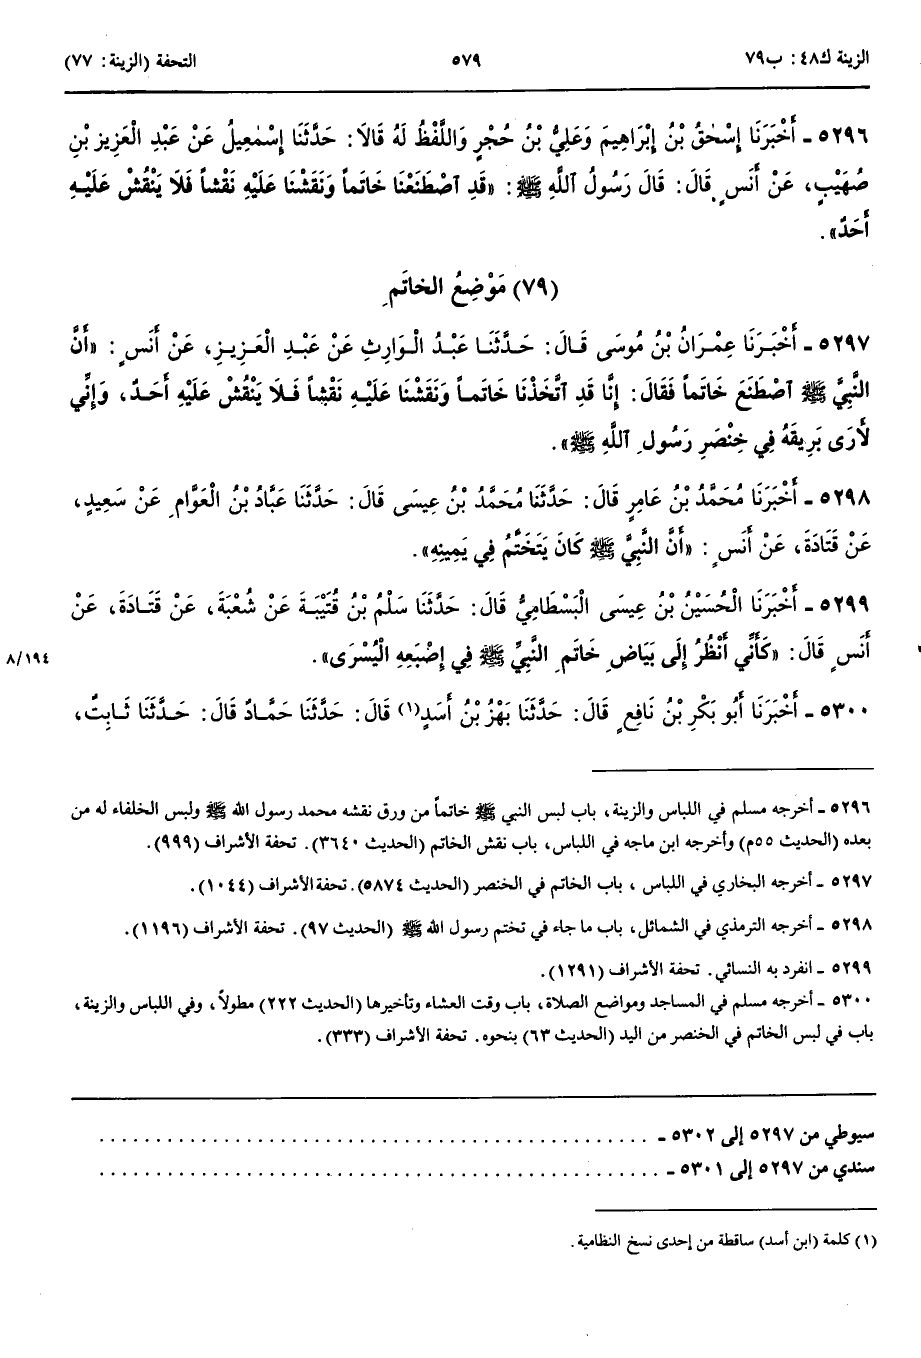 الزينة ك٤٨: ب٧٩
٥٧٩
التحفة (الزينة: ٧٧)
٥٢٩٦ ـ أَخْبَرَنَا إِسْحٰقُ بْنُ إِبْرَاهِيمَ وَعَلِيُّ بْنُ حُجْرٍ وَاللَّفْظُ لَهُ قَالَا: حَدَّثَنَا إِسْمٰعِيلُ عَنْ عَبْدِ الْعَزِيزِ بْنِ
صُهَيْبٍ، عَنْ أَنَسٍ قَالَ: قَالَ رَسُولُ ٱللَّهِ ﷺ: «قَدِ ٱصْطَنَعْنَا خَاتَماً وَنَقَشْنَا عَلَيْهِ نَقْشاً فَلَا يَنْقُشْ عَلَيْهِ
أَحَدٌ».
(٧٩) مَوْضِعُ الخاتَمِ
٥٢٩٧ ـ أَخْبَرَنَا عِمْرَانُ بْنُ مُوسَى قَالَ: حَدَّثَنَا عَبْدُ الْوَارِثِ عَنْ عَبْدِ الْعَزِيزِ، عَنْ أَنَسٍ: «أَنَّ
النَّبِيَّ ﷺ ٱصْطَنَعَ خَاتَماً فَقَالَ: إِنَّا قَدِ ٱتَّخَذْنَا خَاتَماً وَنَقَشْنَا عَلَيْهِ نَقْشاً فَلَا يَنْقُشْ عَلَيْهِ أَحَدٌ، وَإِنِّي
لَأَرَى بَرِيقَهُ فِي خِنْصَرِ رَسُولِ ٱللَّهِ ﷺ».
٥٢٩٨ ـ أَخْبَرَنَا مُحَمَّدُ بْنُ عَامِرٍ قَالَ: حَدَّثَنَا مُحَمَّدُ بْنُ عِيسَى قَالَ: حَدَّثَنَا عَبَّادُ بْنُ الْعَوَّامِ عَنْ سَعِيدٍ،
عَنْ قَتَادَةَ، عَنْ أَنَسٍ: «أَنَّ النَّبِيَّ ﷺ كَانَ يَتَخَتَّمُ فِي يَمِينِهِ».
٥٢٩٩ ـ أَخْبَرَنَا الْحُسَيْنُ بْنُ عِيسَى الْبَسْطَامِيُّ قَالَ: حَدَّثَنَا سَلْمُ بْنُ قُتَيْبَةَ عَنْ شُعْبَةَ، عَنْ قَتَادَةَ، عَنْ
أَنَسٍ قَالَ: «كَأَنِّي أَنْظُرُ إِلَى بَيَاضِ خَاتَمِ النَّبِيِّ ﷺ فِي إِصْبَعِهِ الْيُسْرَى».
٨/١٩٤
٥٣٠٠ ـ أَخْبَرَنَا أَبُو بَكْرِ بْنُ نَافِعٍ قَالَ: حَدَّثَنَا بَهْزُ بْنُ أَسَدٍ(١) قَالَ: حَدَّثَنَا حَمَّادٌ قَالَ: حَدَّثَنَا ثَابِتٌ،
٥٢٩٦ ـ أخرجه مسلم في اللباس والزينة، باب لبس النبي ﷺ خاتماً من ورق نقشه محمد رسول الله ﷺ ولبس الخلفاء له من
بعده (الحديث ٥٥م) وأخرجه ابن ماجه في اللباس، باب نقش الخاتم (الحديث ٣٦٤٠). تحفة الأشراف (٩٩٩).
٥٢٩٧ ـ أخرجه البخاري في اللباس، باب الخاتم في الخنصر (الحديث ٥٨٧٤). تحفة الأشراف (١٠٤٤).
٥٢٩٨ ـ أخرجه الترمذي في الشمائل، باب ما جاء في تختم رسول الله ﷺ (الحديث ٩٧). تحفة الأشراف (١١٩٦).
٥٢٩٩ ـ انفرد به النسائي. تحفة الأشراف (١٢٩١).
٥٣٠٠ ـ أخرجه مسلم في المساجد ومواضع الصلاة، باب وقت العشاء وتأخيرها (الحديث ٢٢٢) مطولاً، وفي اللباس والزينة،
باب في لبس الخاتم في الخنصر من اليد (الحديث ٦٣) بنحوه. تحفة الأشراف (٣٣٣).
سيوطي من ٥٢٩٧ إلى ٥٣٠٢ ـ ................................................
سندي من ٥٢٩٧ إلى ٥٣٠١ ـ ................................................
(١) كلمة (ابن أسد) ساقطة من إحدى نسخ النظامية.